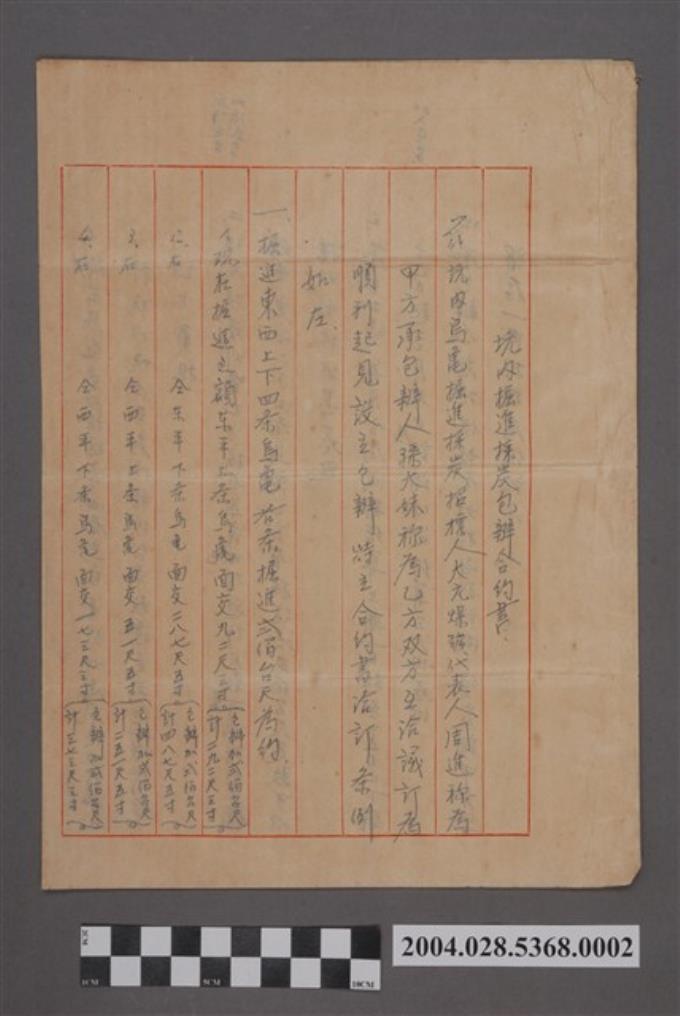 坑內掘進採炭包辦合約書、
茲坑內烏龜掘進採炭招擔人大元煤礦代表人周進稱為
甲方承包辦人 大妹稱為乙方双方互洽議訂為
順利起見設立包辦特立合約書洽訂条例
如左、
一、掘進東西上下四条烏龜各条掘進弍佰台尺為約、
1、現在掘進之額东平上条烏龜面交九二尺三寸 包辦加弍佰台尺 計二九二尺三寸
2、右 仝东平下条烏龜面交二八七尺五寸 包辦加弍佰台尺 計四八七尺五寸
3、右 仝西平上条烏龜面交五一尺五寸 包辦加弍佰台尺 計二五一尺五寸
4、右 仝西平下条烏龜面交一七三尺三寸 包辦加弍佰台尺 計三七三尺三寸
1CM 5CM 10CM
2004.028.5368.0002